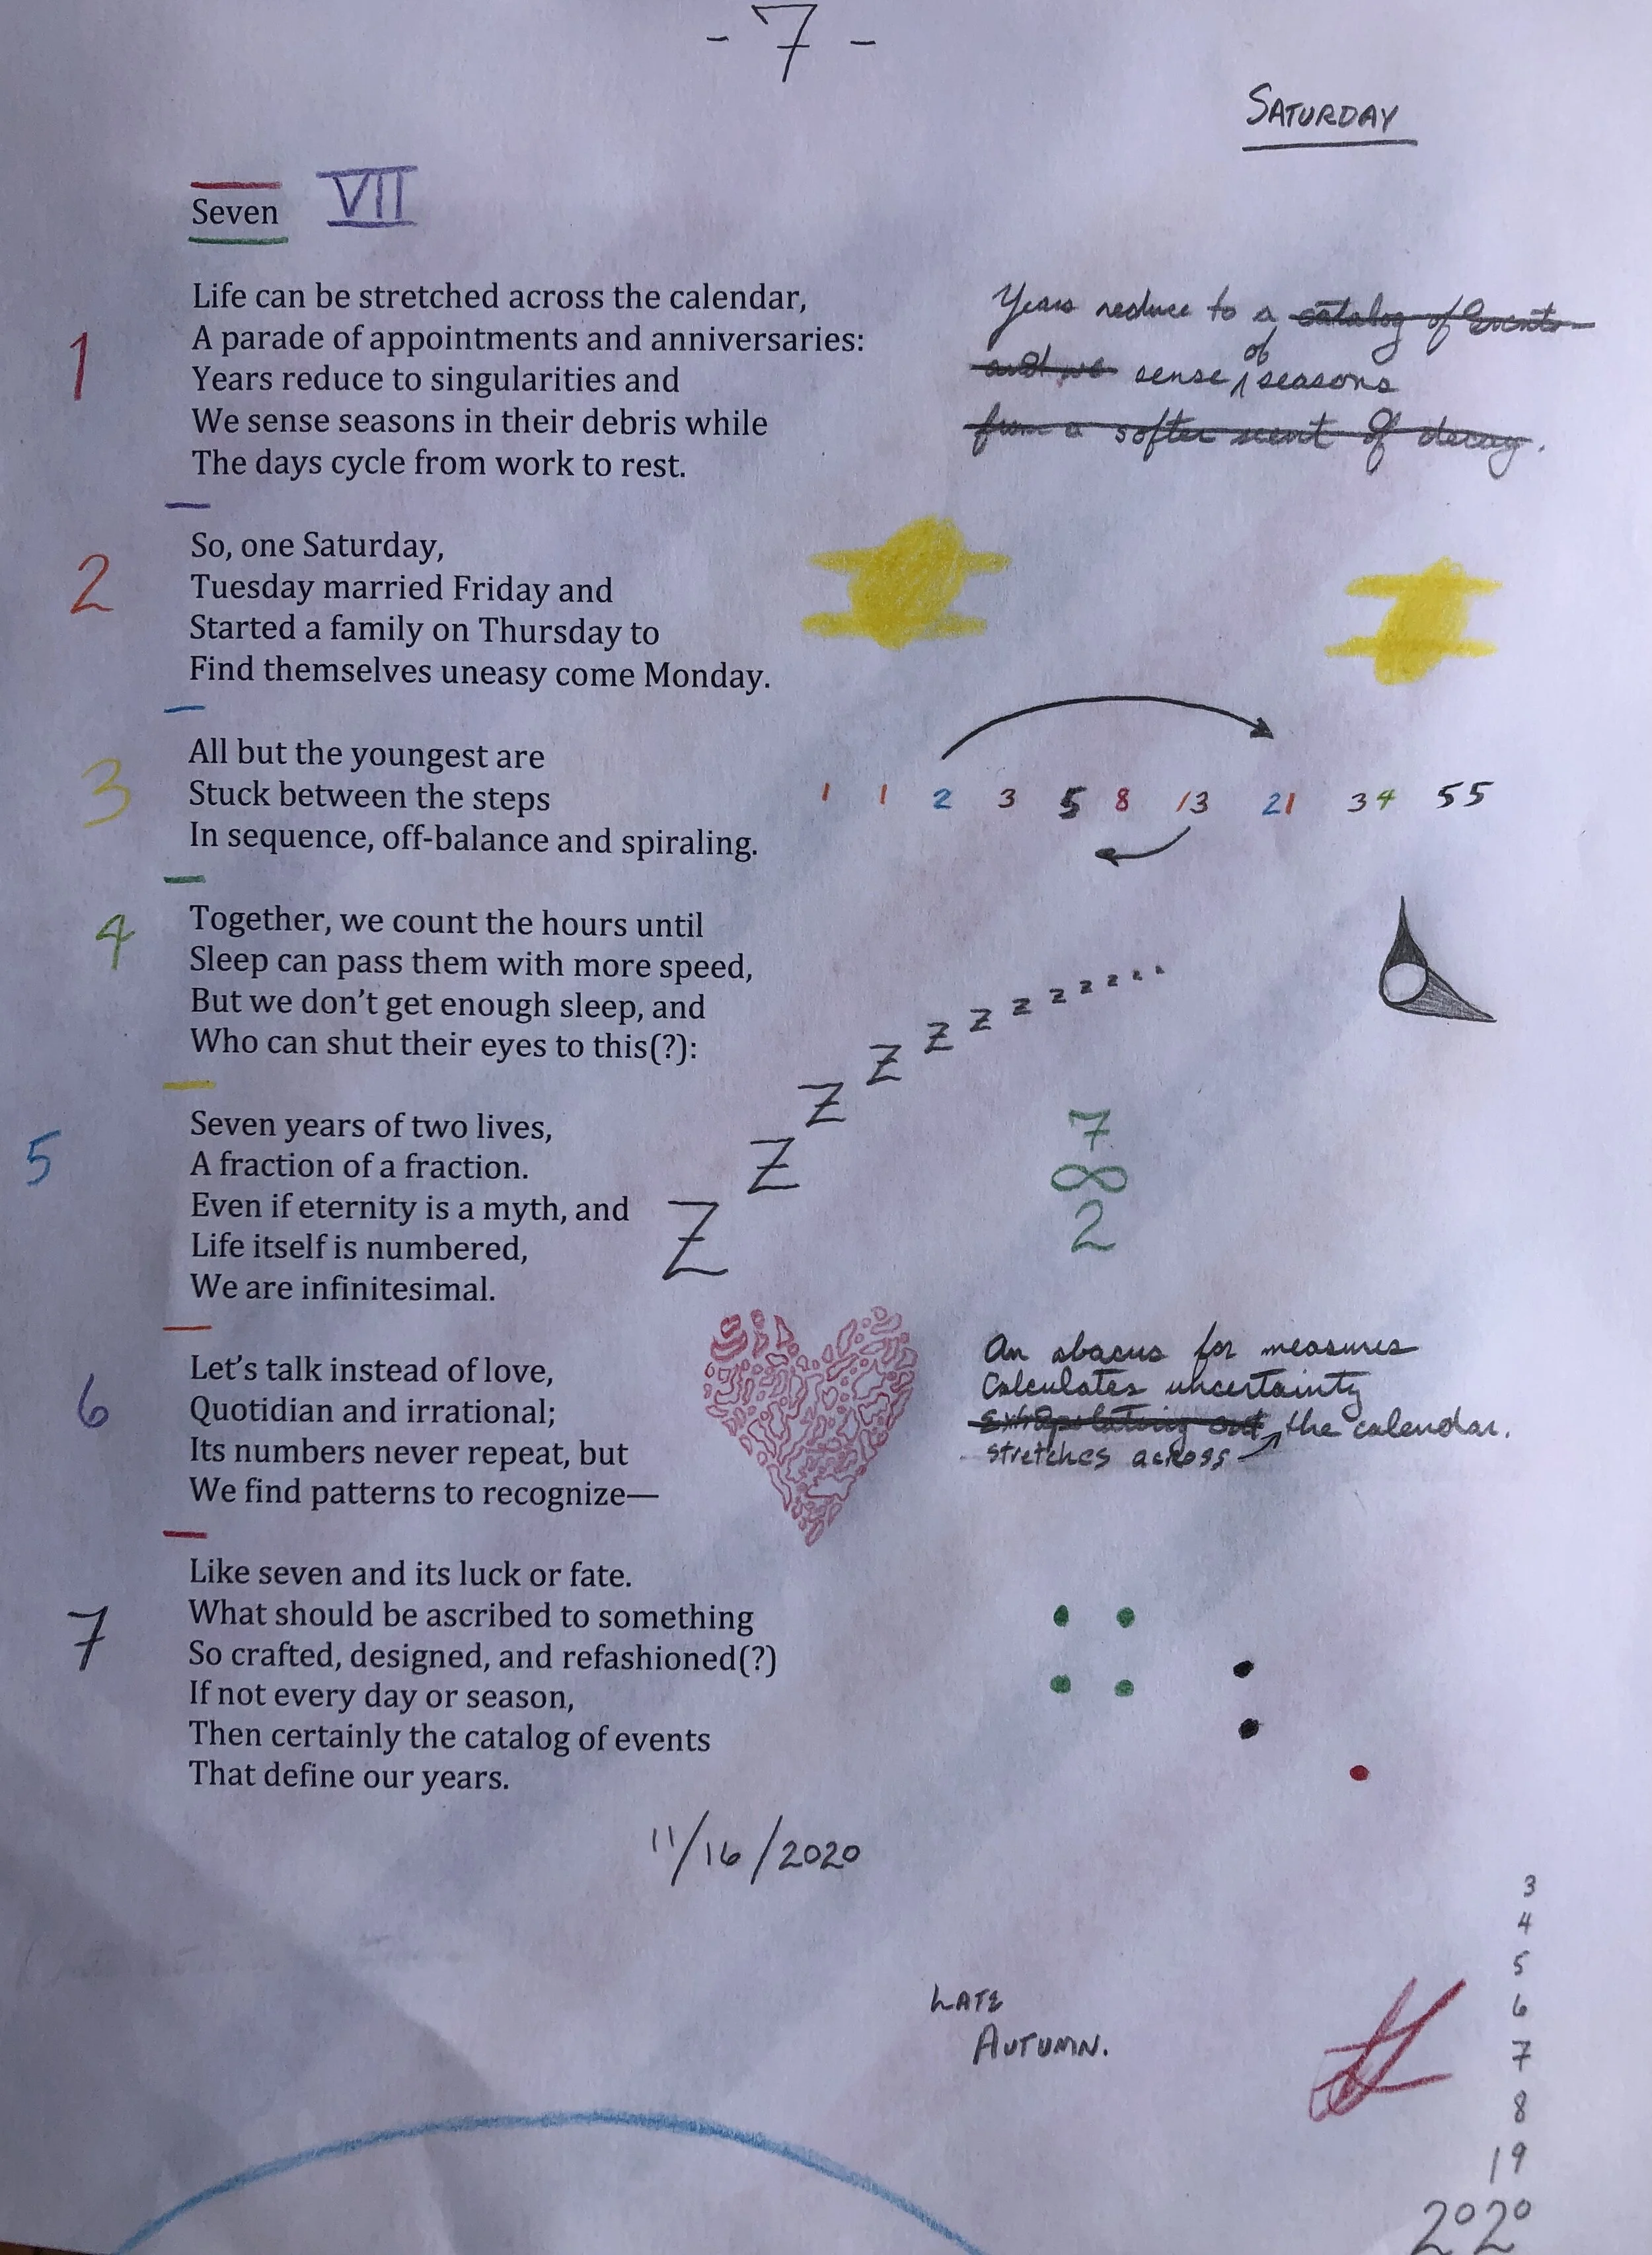 - 7 -
SATURDAY
Seven VII
1
Life can be stretched across the calendar,
A parade of appointments and anniversaries:
Years reduce to singularities and
We sense seasons in their debris while
The days cycle from work to rest.
Years reduce to a catalog of events
of
and we sense seasons
from a softer scent of decay.
2
So, one Saturday,
Tuesday married Friday and
Started a family on Thursday to
Find themselves uneasy come Monday.
3
All but the youngest are
Stuck between the steps
In sequence, off-balance and spiraling.
1 1 2 3 5 8 13 21 34 55
4
Together, we count the hours until
Sleep can pass them with more speed,
But we don't get enough sleep, and
Who can shut their eyes to this(?):
Z Z Z Z Z Z Z Z Z Z
5
Seven years of two lives,
A fraction of a fraction.
Even if eternity is a myth, and
Life itself is numbered,
We are infinitesimal.
7
∞
2
6
Let's talk instead of love,
Quotidian and irrational;
Its numbers never repeat, but
We find patterns to recognize—
An abacus for measures
Calculates uncertainty
Extrapolating out the calendar.
stretches across
7
Like seven and its luck or fate.
What should be ascribed to something
So crafted, designed, and refashioned(?)
If not every day or season,
Then certainly the catalog of events
That define our years.
11/16/2020
LATE
AUTUMN.
3
4
5
6
7
8
19
2020